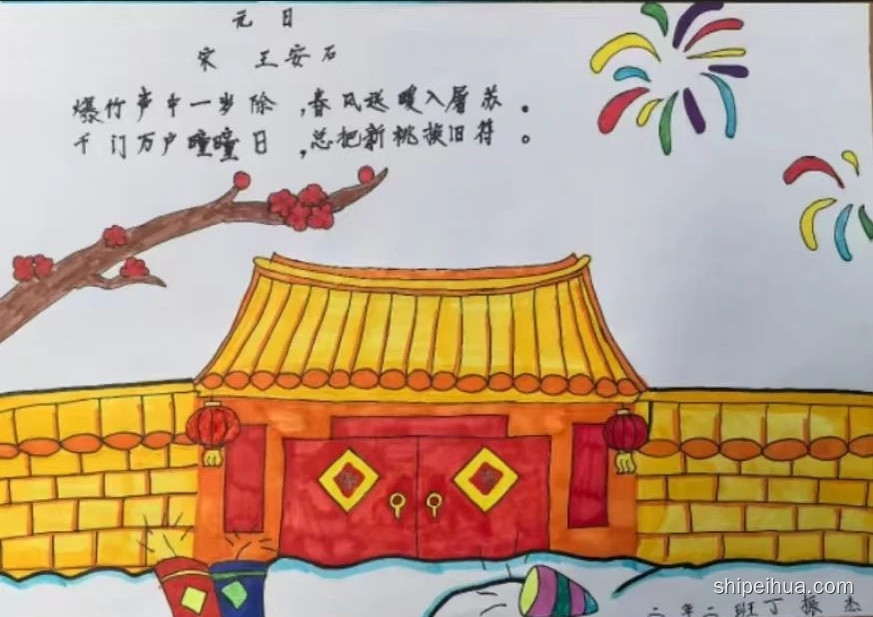 元日
宋 王安石
爆竹声中一岁除,春风送暖入屠苏。
千门万户曈曈日,总把新桃换旧符。
二年二班丁振杰
shipeihua.com